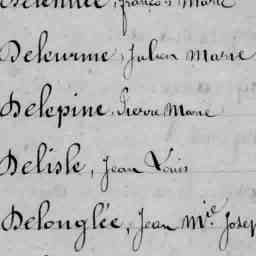 François Marie
Deleurme, Julien Marie
Delepine, Pierre Marie
Delisle, Jean Louis
Delonglée, Jean Mie Josep